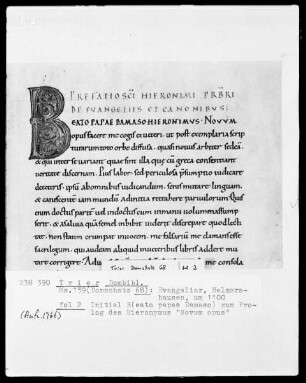 PREFATIO SCI HIERONIMI PRBRI
DE EVANGELIIS ET CANONIBUS:
BEATO PAPAE DAMASO HIERONIMUS. NOVUM
opus facere me cogis ex veteri. ut post exemplaria scrip
turarum toto orbe diffusa. quasi novus arbiter sedeā.
& qui inter se variant quae sint illa quę cū greca consentiant
veritate discernam. Pius labor. sed periculosa pśumptio iudicare
de ceteris. ipsū ab omnibus iudicandum. senis mutare linguam.
& canescente iam mundū ad initia retrahere parvulorum. Quis
enim doctus pariter vel indoctus cum in manus volumen assump
serit. & a saliva quā semel inbibit viderit discrepare quod lecti
tat. non statim erumpat in vocem. me falsariū me clamans esse
sacrilegum. qui audeam aliquid in veteribus libris addere mu
tare corrigere. Adv me consola
Trier, Domschatz 68 Bl 2
238 390 Trier Dombibl.
Hs.139(Domschatz 68): Evangeliar, Helmars-
hausen, um 1100
fol 2 Initial B(eato papae Damaso) zum Pro-
log des Hieronymus "Novum opus"
(Aufn. 1966)